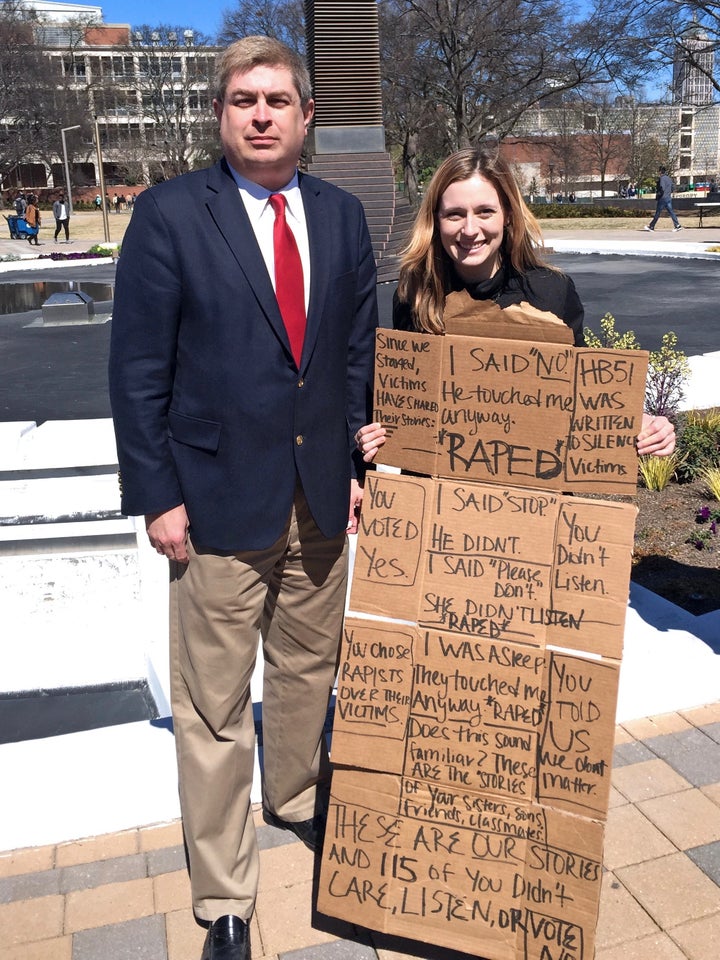 Since we
Started,
Victims
HAVE SHARED
Their Stories:
I SAID "NO"
He touched me
anyway.
*RAPED*
HB51
WAS
WRITTEN
to SILENCE
Victims
You
VOTED
Yes.
I SAID "STOP"
HE DIDN'T.
I SAID "Please,
DON'T."
SHE DIDN'T LISTEN
*RAPED*
You
Didn't
Listen.
You chose
RAPISTS
OVER THEIR
VICTIMS.
I WAS ASleep.
They touched me
Anyway *RAPED*
Does this sound
familiar? These
ARE THE *STORIES
of your sisters, sons
Friends, classmates.
YOU
TOLD
US
We don't
matter.
THESE ARE OUR STORIES
AND 115 OF YOU Didn't
CARE, LISTEN, OR VOTE
NO